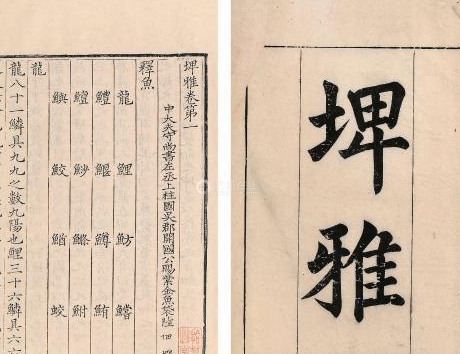 埤雅
埤雅卷第一
中大夫守尚書左丞上柱國吳郡開國公賜紫金魚袋陸佃
釋魚
龍 鯉 魴 鱨
鱧 鰋 鱒 鮪
鱣 魦 鰷 鮒
鱮 鮫 鰌 蛟
龍
龍八十一鱗具九九之數九陽也鯉三十六鱗具六六